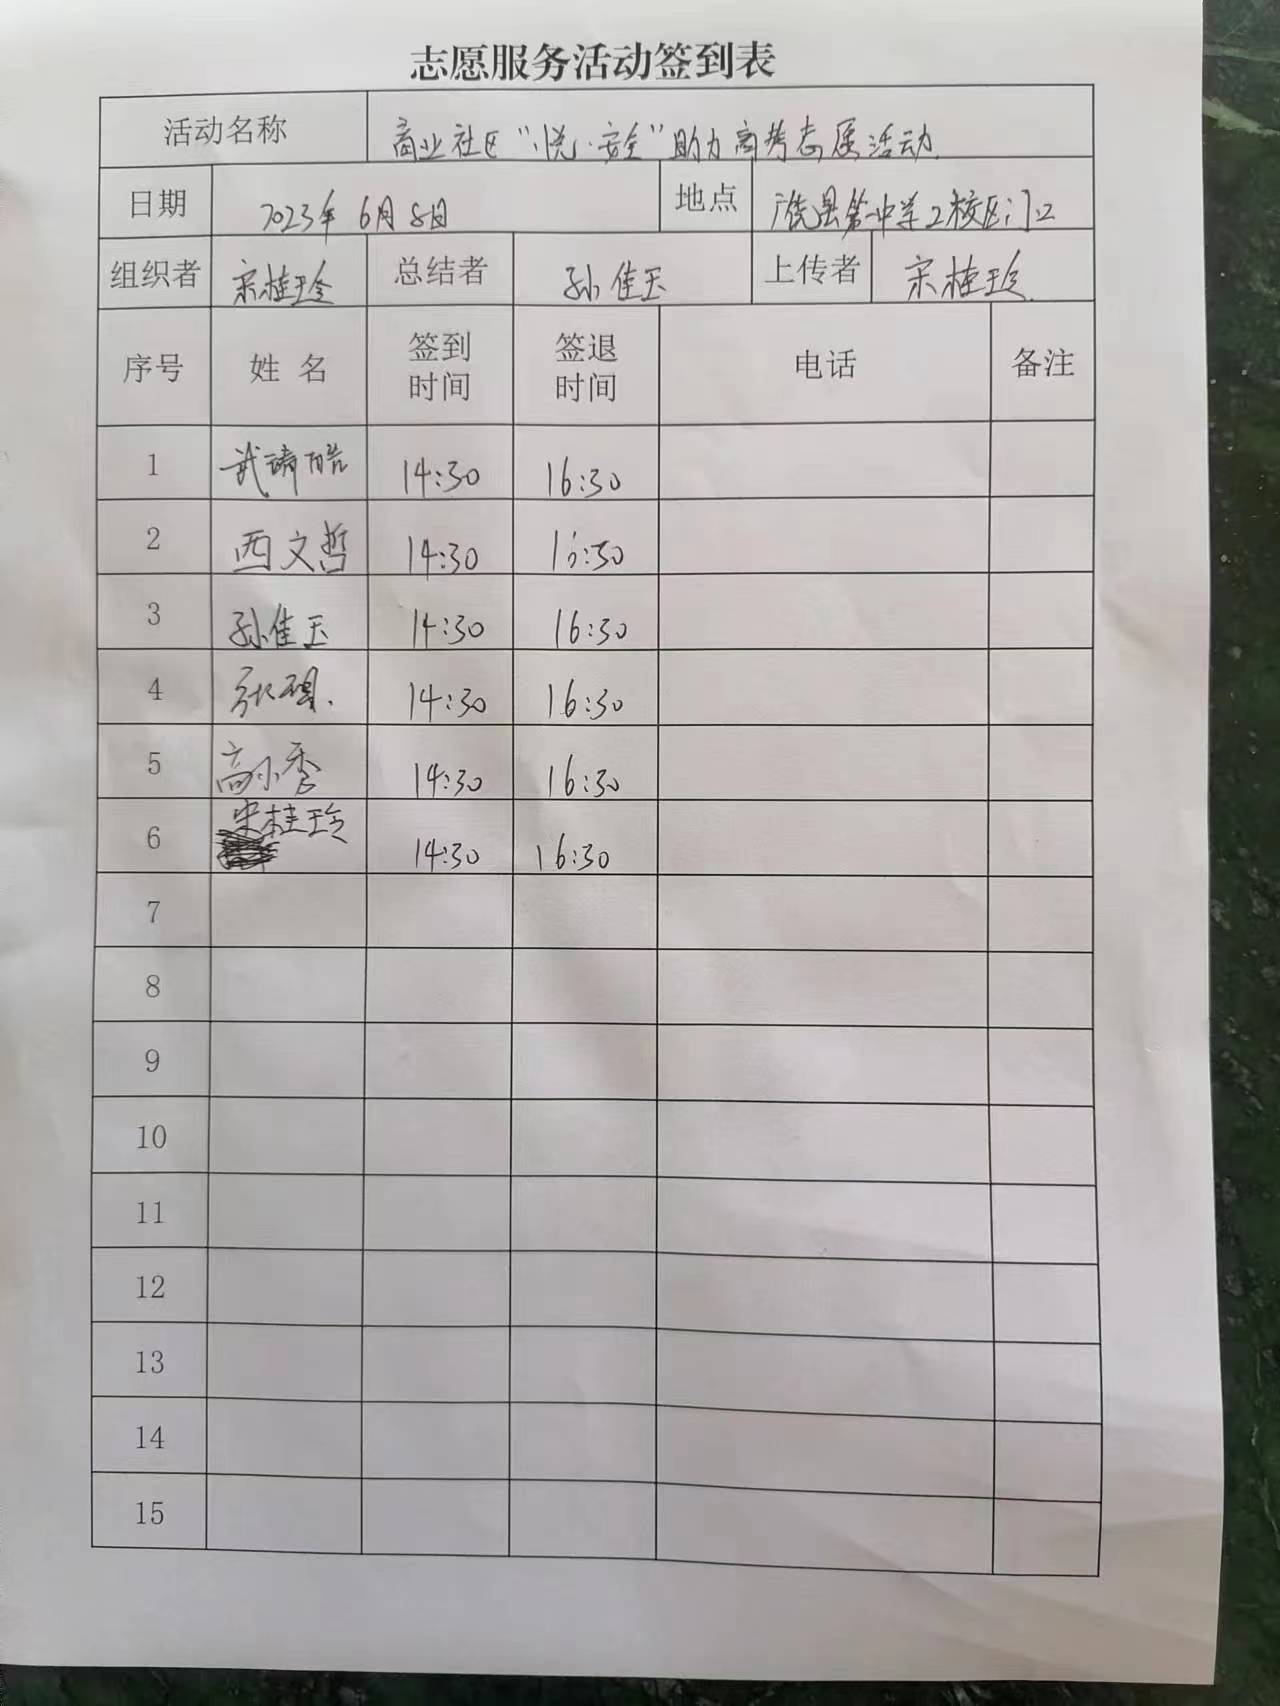 志愿服务活动签到表
活动名称 商业社区“悦·安全”助力高考志愿活动
日期 2023年6月8日 地点 广饶县第一中学2校区门口
组织者 宋桂玲 总结者 孙佳玉 上传者 宋桂玲
序号 姓名 签到时间 签退时间 电话 备注
1 14:30 16:30
2 西文哲 14:30 16:30
3 孙佳玉 14:30 16:30
4 14:30 16:30
5 高小秀 14:30 16:30
6 宋桂玲 14:30 16:30
7
8
9
10
11
12
13
14
15